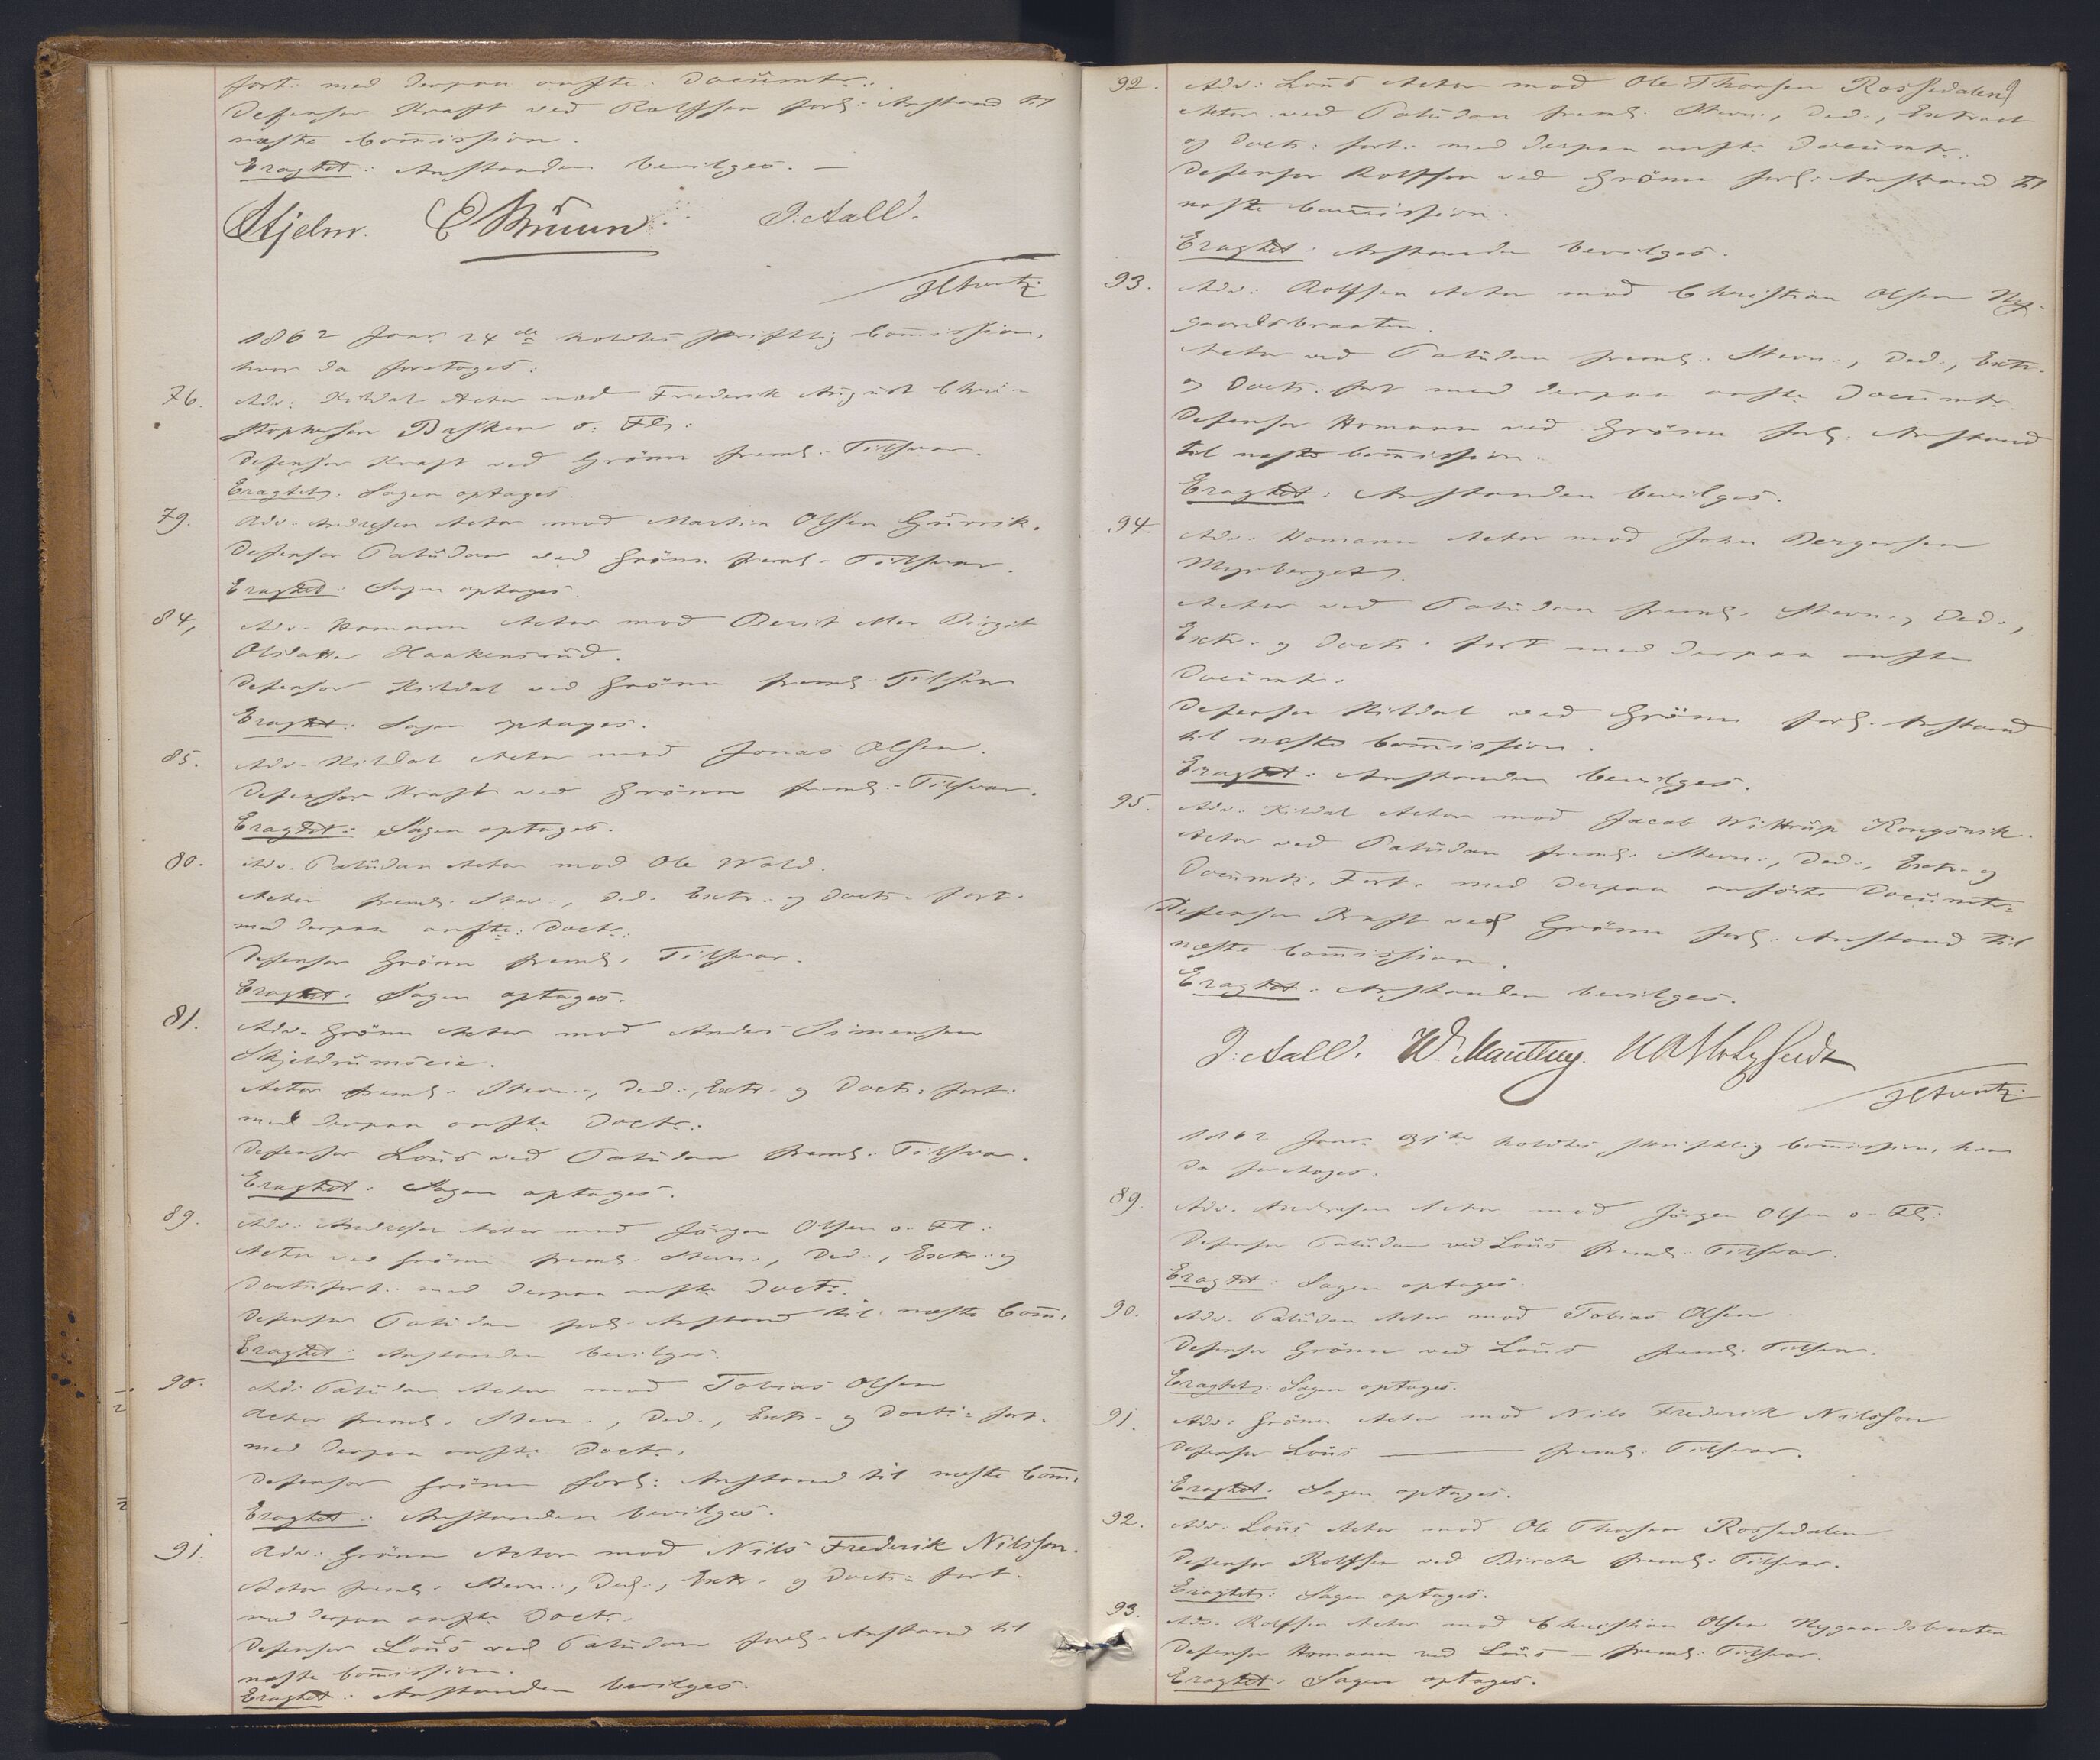 fort: med derpaa anførte: Documtr:
Defensor Kraft ved Rolfsen forl: Anstand til
næste Commission.
Eragtet: Anstanden bevilges. —
Hjelm. E Bruun J: Aall.
1862 Janr 24de holdtes skriftlig Commission,
hvor da foretoges:
76. Adv: Kildal Actor mod Frederik August Chri-
stophersen Basken o: Fl:
Defensor Kraft ved Grönn freml: Tilsvar.
Eragtet: Sagen optages.
79. Adv. Andresen Actor mod Martin Olsen
Defensor Paludan ved Grönn freml: Tilsvar.
Eragtet: Sagen optages.
84, Adv. Homann Actor mod Berit eller Birgit
Olsdatter Haakensrud.
Defensor Kildal ved Grönn freml: Tilsvar
Eragtet: Sagen optages.
85. Adv. Kildal Actor mod Jonas Olsen.
Defensor Kraft ved Grönn freml: Tilsvar.
Eragtet: Sagen optages.
80. Adv. Paludan Actor mod Ole Wold.
Actor freml: Stev:, Ded: Extr: og Docts: fort:
med derpaa anfte: Doctr:
Defensor Grönn freml: Tilsvar.
Eragtet: Sagen optages.
81. Adv. Grönn Actor mod Anders Simensen
Skjeldrumseie.
Actor freml: Stevn:, Ded:, Extr: og Docts: fort:
med derpaa anfte Doctr:
Defensor Lous ved Paludan freml: Tilsvar.
Eragtet: Sagen optages.
89. Adv: Andresen Actor mod Jörgen Olsen o: Fl:
Actor ved Grönn freml: Stevn:, Ded:, Extr: og
Docts: fort: med derpaa anfte Doctr:
Defensor Paludan forl: Anstand til næste Comm:
Eragtet: Anstanden bevilges.
90. Adv: Paludan Actor mod Tobias Olsen
Actor freml: Stevn:, Ded:, Extr: og Docts: fort:
med derpaa anfte Doctr:
Defensor Grönn forl: Anstand til næste Comm:
Eragtet: Anstanden bevilges.
91. Adv: Grönn Actor mod Nils Frederik Nilsson.
Actor freml: Stevn:, Ded:, Extr: og Docts: fort:
med derpaa anfte Doctr:
Defensor Lous ved Paludan forl: Anstand til
næste Commission.
Eragtet: Anstanden bevilges.
92. Adv: Lous Actor mod Ole Thorsen Rossedalen
Actor ved Paludan freml: Stevn:, Ded:, Extract
og Docts: fort: med derpaa anfte Documtr:
Defensor Rolfsen ved Grönn forl: Anstand til
næste Commission.
Eragtet: Anstanden bevilges.
93. Adv: Rolfsen Actor mod Christian Olsen Ny-
gaardsbraaten.
Actor ved Paludan freml: Stevn:, Ded:, Extr:
og Docts: fort med derpaa anfte Documtr:
Defensor Homann ved Grönn forl: Anstand
til næste Commission.
Eragtet: Anstanden bevilges.
94. Adv. Homann Actor mod John Bergersen
Myrberget.
Actor ved Paludan freml: Stevn:, Ded:,
Extr: og Docts: fort med derpaa anfte
Documtr:
Defensor Kildal ved Grönn forl: Anstand
til næste Commission.
Eragtet: Anstanden bevilges.
95. Adv. Kildal Actor mod Jacob Wittrup Kongsvik.
Actor ved Paludan freml: Stevn:, Ded:, Extr: og
Documts: Fort: med derpaa anførte Documtr:
Defensor Kraft ved Grönn forl: Anstand til
næste Commission.
Eragtet: Anstanden bevilges.
J: Aall.
1862 Janr 31te holdtes skriftlig Commission, hvor
da foretoges:
89. Adv. Andresen Actor mod Jörgen Olsen o: Fl:
Defensor Paludan ved Lous freml: Tilsvar.
Eragtet: Sagen optages.
90. Adv. Paludan Actor mod Tobias Olsen
Defensor Grönn ved Lous freml: Tilsvar.
Eragtet: Sagen optages.
91. Adv: Grönn Actor mod Nils Frederik Nilsson
Defensor Lous — freml: Tilsvar.
Eragtet: Sagen optages.
92. Adv: Lous Actor mod Ole Thorsen Rossedalen
Defensor Rolfsen ved Birch freml: Tilsvar.
Eragtet: Sagen optages.
93. Adv. Rolfsen Actor mod Christian Olsen Nygaardsbraaten
Defensor Homann ved Lous — freml: Tilsvar.
Eragtet: Sagen optages.